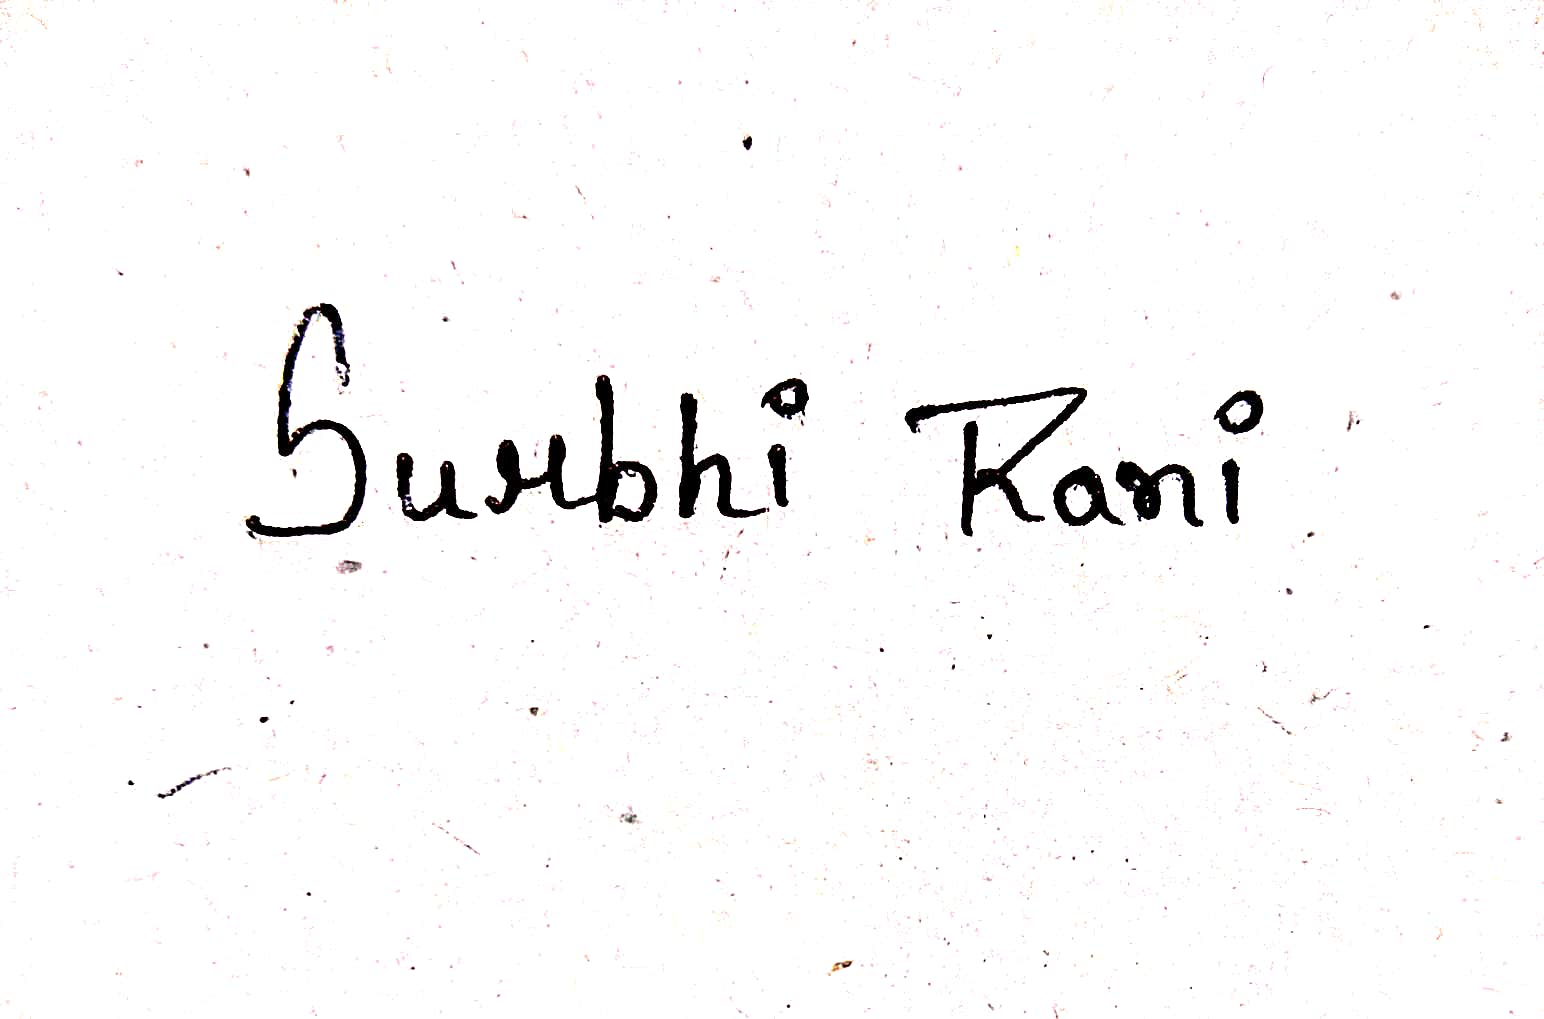 Surbhi Rani